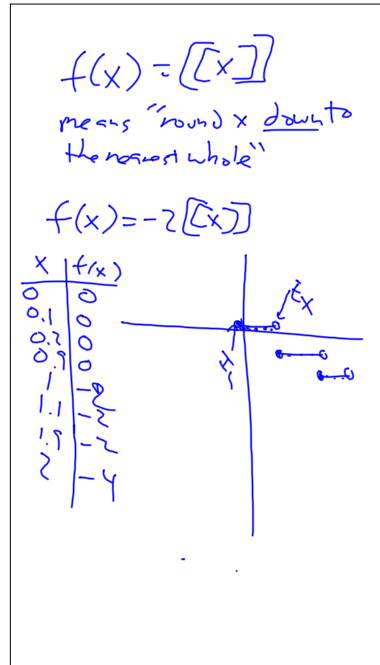 f(x) = [[x]]
means "round x down to
the nearest whole"
f(x) = -2[[x]]
x f(x)
0 0
0.1 0
0.2 0
0.9 0
1 -2
1.1 -2
1.9 -2
2 -4